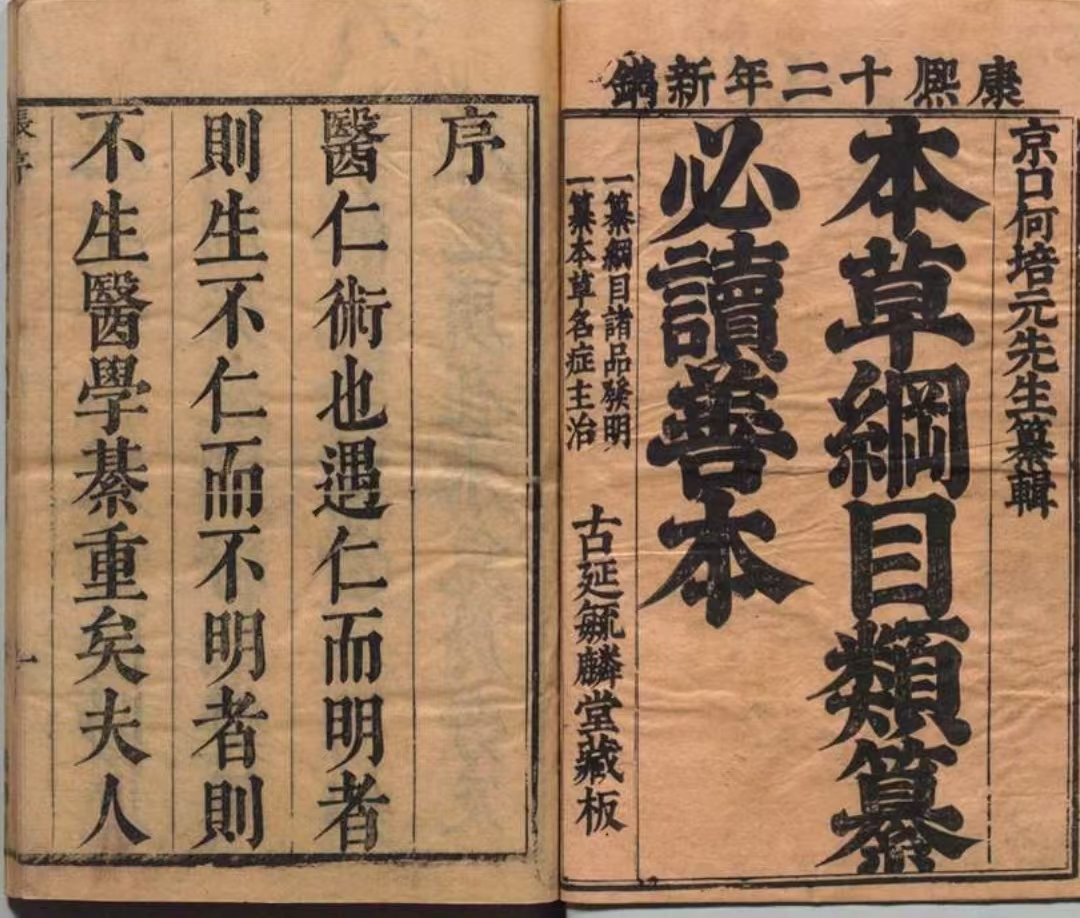 康熙十二年新鐫
京口何培元先生纂輯
本草綱目類纂
必讀善本
一纂綱目諸品發明
一纂本草名症主治
古延毓麟堂藏板
序
醫仁術也遇仁而明者
則生不仁而不明者則
不生醫學綦重矣夫人
張序
一